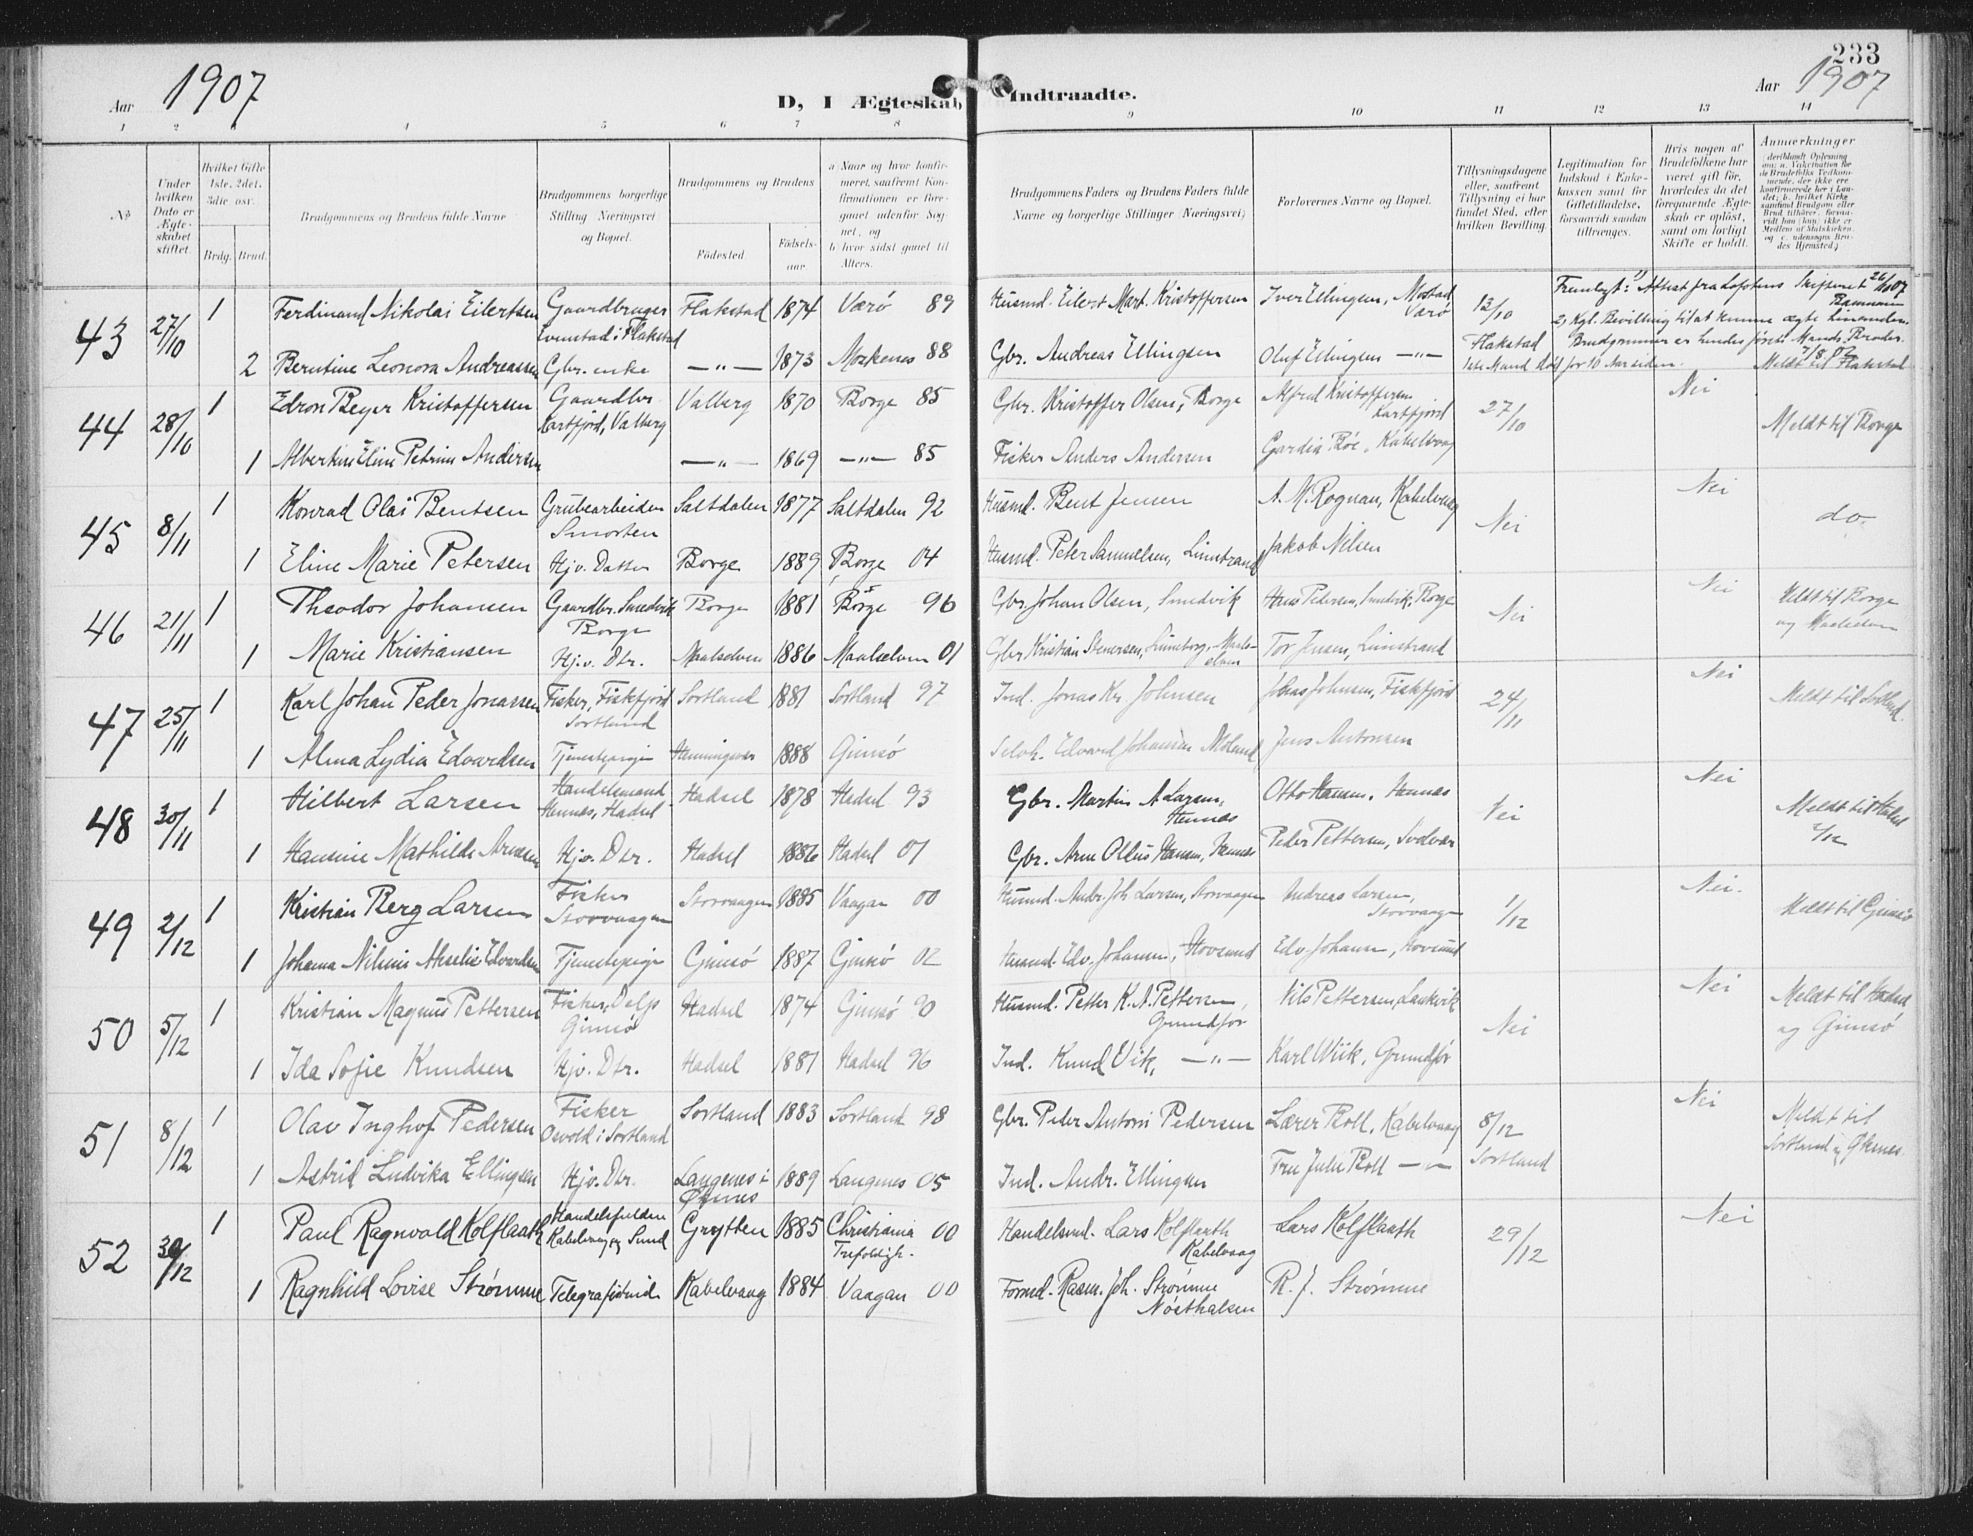 233
Aar 1907
D, I Ægteskab Indtraadte.
Aar 1907
1 2 3 4 5 6 7 8 9 10 11 12 13 14
No
Under hvilken Dato er Ægteskabet stiftet.
Hvilket Gifte 1ste, 2det, 3die osv.
Brdg. Brud.
Brudgommens og Brudens fulde Navne
Brudgommens borgerlige Stilling Næringsvei og Bopæl.
Brudgommens og Brudens
Födested
Födsels-aar
a Naar og hvor konfirmeret, saafremt Konfirmationen er foregaaet udenfor Sognet, og
b hvor sidst gaaet til Alters.
Brudgommens Faders og Brudens Faders fulde Navne og borgerlige Stillinger (Næringsvei)
Forlovernes Navne og Bopæl.
Tillysningsdagene eller, saafremt Tillysning ei har fundet Sted, efter hvilken Bevilling.
Legitimation for Indskud i Enkekassen samt for Giftetilladelse, forsaavidt saadan tiltrænges.
Hvis nogen af Brudefolkene har været gift för, hvorledes da det foregaaende Ægteskab er oplöst, samt om lovligt Skifte er holdt.
Anmærkninger
43 27/10 1 Ferdinand Nikolai Eilertsen Gaardbruger Flakstad 1874 Værö 89 Husmd. Eilert Mart. Kristoffersen Iver Ellingsen, Mostad Værö 13/10 Fremlagt: 1) Attest fra Lofotens Skifteret 26/ 1907
Evenstad i Flakstad Flakstad 2) Kgl. Bevilling til at kunne ægte Enemden. Brudgommen er hendes förste Mands Broder.
2 Berntine Leonora Andreassen Gbr. enke —"— 1873 Moskenes 88 Gbr. Andreas Ellingsen Oluf Ellingsen —"— 1ste Mand död for 10 Aar siden. Meldt til Flakstad
44 28/10 1 Edron Beyer Kristoffersen Gaardbr. Valberg 1870 Borge 85 Gbr. Kristoffer Olsen, Borge Alfred Kristoffersen Kartfjord 27/10 Nei Meldt til Borge
Kartfjord, Valberg
1 Albertine Eline Petrine Andersen —"— 1869 —"— 85 Fisker Anders Andersen Gardia Röe, Kabelvaag
45 8/11 1 Konrad Olai Bentsen Grubearbeider Saltdalen 1877 Saltdalen 92 Husmd. Bent Jensen A. M. Rognan, Kabelvaag Nei Nei do.
Smorten
1 Eline Marie Petersen Hjv. Datter Borge 1889 Borge 04 Husmd. Peter Samuelsen, Limstrand Jakob Nilsen
46 21/11 1 Theodor Johansen Gaardbr. Smedvik Borge 1881 Borge 96 Gbr. Johan Olsen, Smedvik Hans Pedersen, Smedvik, Borge Nei Nei Meldt til Borge
Borge og Maalselven
1 Marie Kristiansen Hj.v. Dtr. Maalselven 1886 Maalselven 01 Gbr. Kristian Stenersen, Maalselven Tor Jensen, Limstrand
47 25/11 1 Karl Johan Peder Jonassen Fisker, Fiskfjord Sortland 1881 Sortland 97 Ind. Jonas Kr. Johnsen Johns Johnsen, Fiskfjord 24/11 Nei Meldt til Sortland.
Sortland
1 Alma Lydia Edvardsen Tjenestepige Henningsvær 1888 Gimsö Selvh. Edvard Johansen Moland Jens Antonsen
48 30/11 1 Hilbert Larsen Handelsmand Hadsel 1878 Hadsel 93 Gbr. Martin A Larsen, Hennes Otto Hansen, Hennes Nei Nei Meldt til Hadsel
Hennes, Hadsel
1 Hansine Mathilde Arnesen Hjv. Dtr. Hadsel 1886 Hadsel 01 Gbr. Arne Ollius Hansen, Hennes Peder Pettersen, Svolvær
49 2/12 1 Kristian Berg Larsen Fisker Storvaagen 1885 Vaagan 00 Husmd. Andr. Joh. Larsen, Storvaagen Andreas Larsen, Storvaagen 1/12 Nei. Meldt til Gimsö
Storvaagen
1 Johanna Nilsine Akselie Edvardsen Tjenestepige Gimsö 1887 Gimsö 02 Husmd. Edv. Johansen, Hovsund Edv. Johansen, Hovsund
50 5/12 1 Kristian Magnus Pettersen Fisker, Delp Hadsel 1874 Gimsö 90 Husmd. Petter K. A. Pettersen, Nils Pettersen, Laukvik Nei Nei Meldt til Hadsel
Gimsö Grundför og Gimsö
1 Ida Sofie Knudsen Hjv. Dtr. Hadsel 1881 Hadsel 96 Ind. Knud Vik, —"— Karl Wiik, Grundför
51 8/12 1 Olav Inghof Pedersen Fisker Sortland 1883 Sortland 98 Gbr. Peder Antoni Pedersen Lærer Roll, Kabelvaag 8/12 Nei Meldt til
Osvold i Sortland Sortland Sortland og Öksnes
1 Astrid Ludvika Ellingsen Hjv. Dtr. Langenes i Öksnes 1889 Langenes 05 Ind. Andr. Ellingsen Fru Julie Roll —"—
52 30/12 1 Paul Ragnvald Kolflaath Handelsfuldm. Grytten 1885 Christiania 00 Handelsmd. Lars Kolflaath Lars Kolflaath 29/12 Nei
Kabelvaag og Sund Trefoldigh. Kabelvaag
1 Ragnhild Lovise Strömme Telegrafistinde Kabelvaag 1884 Vaagan 00 Formd. Rasm. Joh. Strömme R. J. Strömme
Nösthalsen